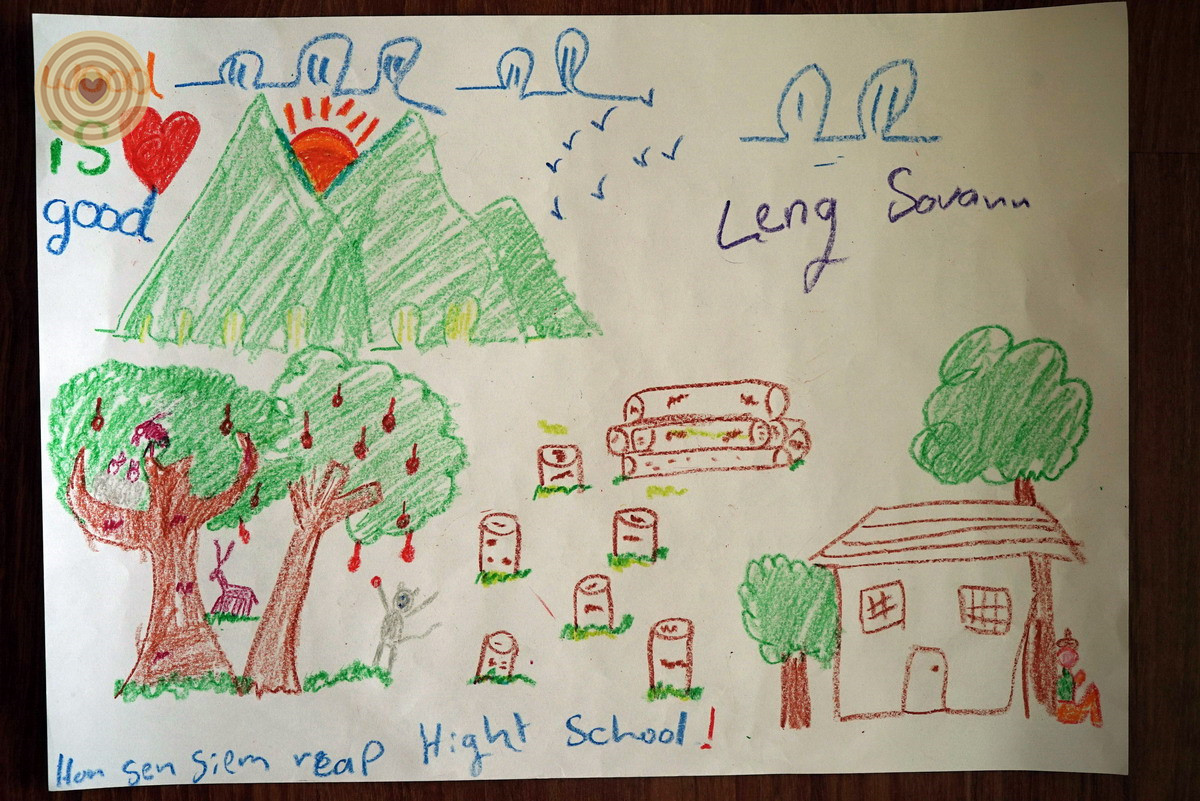 wood
is
good
Leng Sovann
Hun sen Siem reap Hight School!